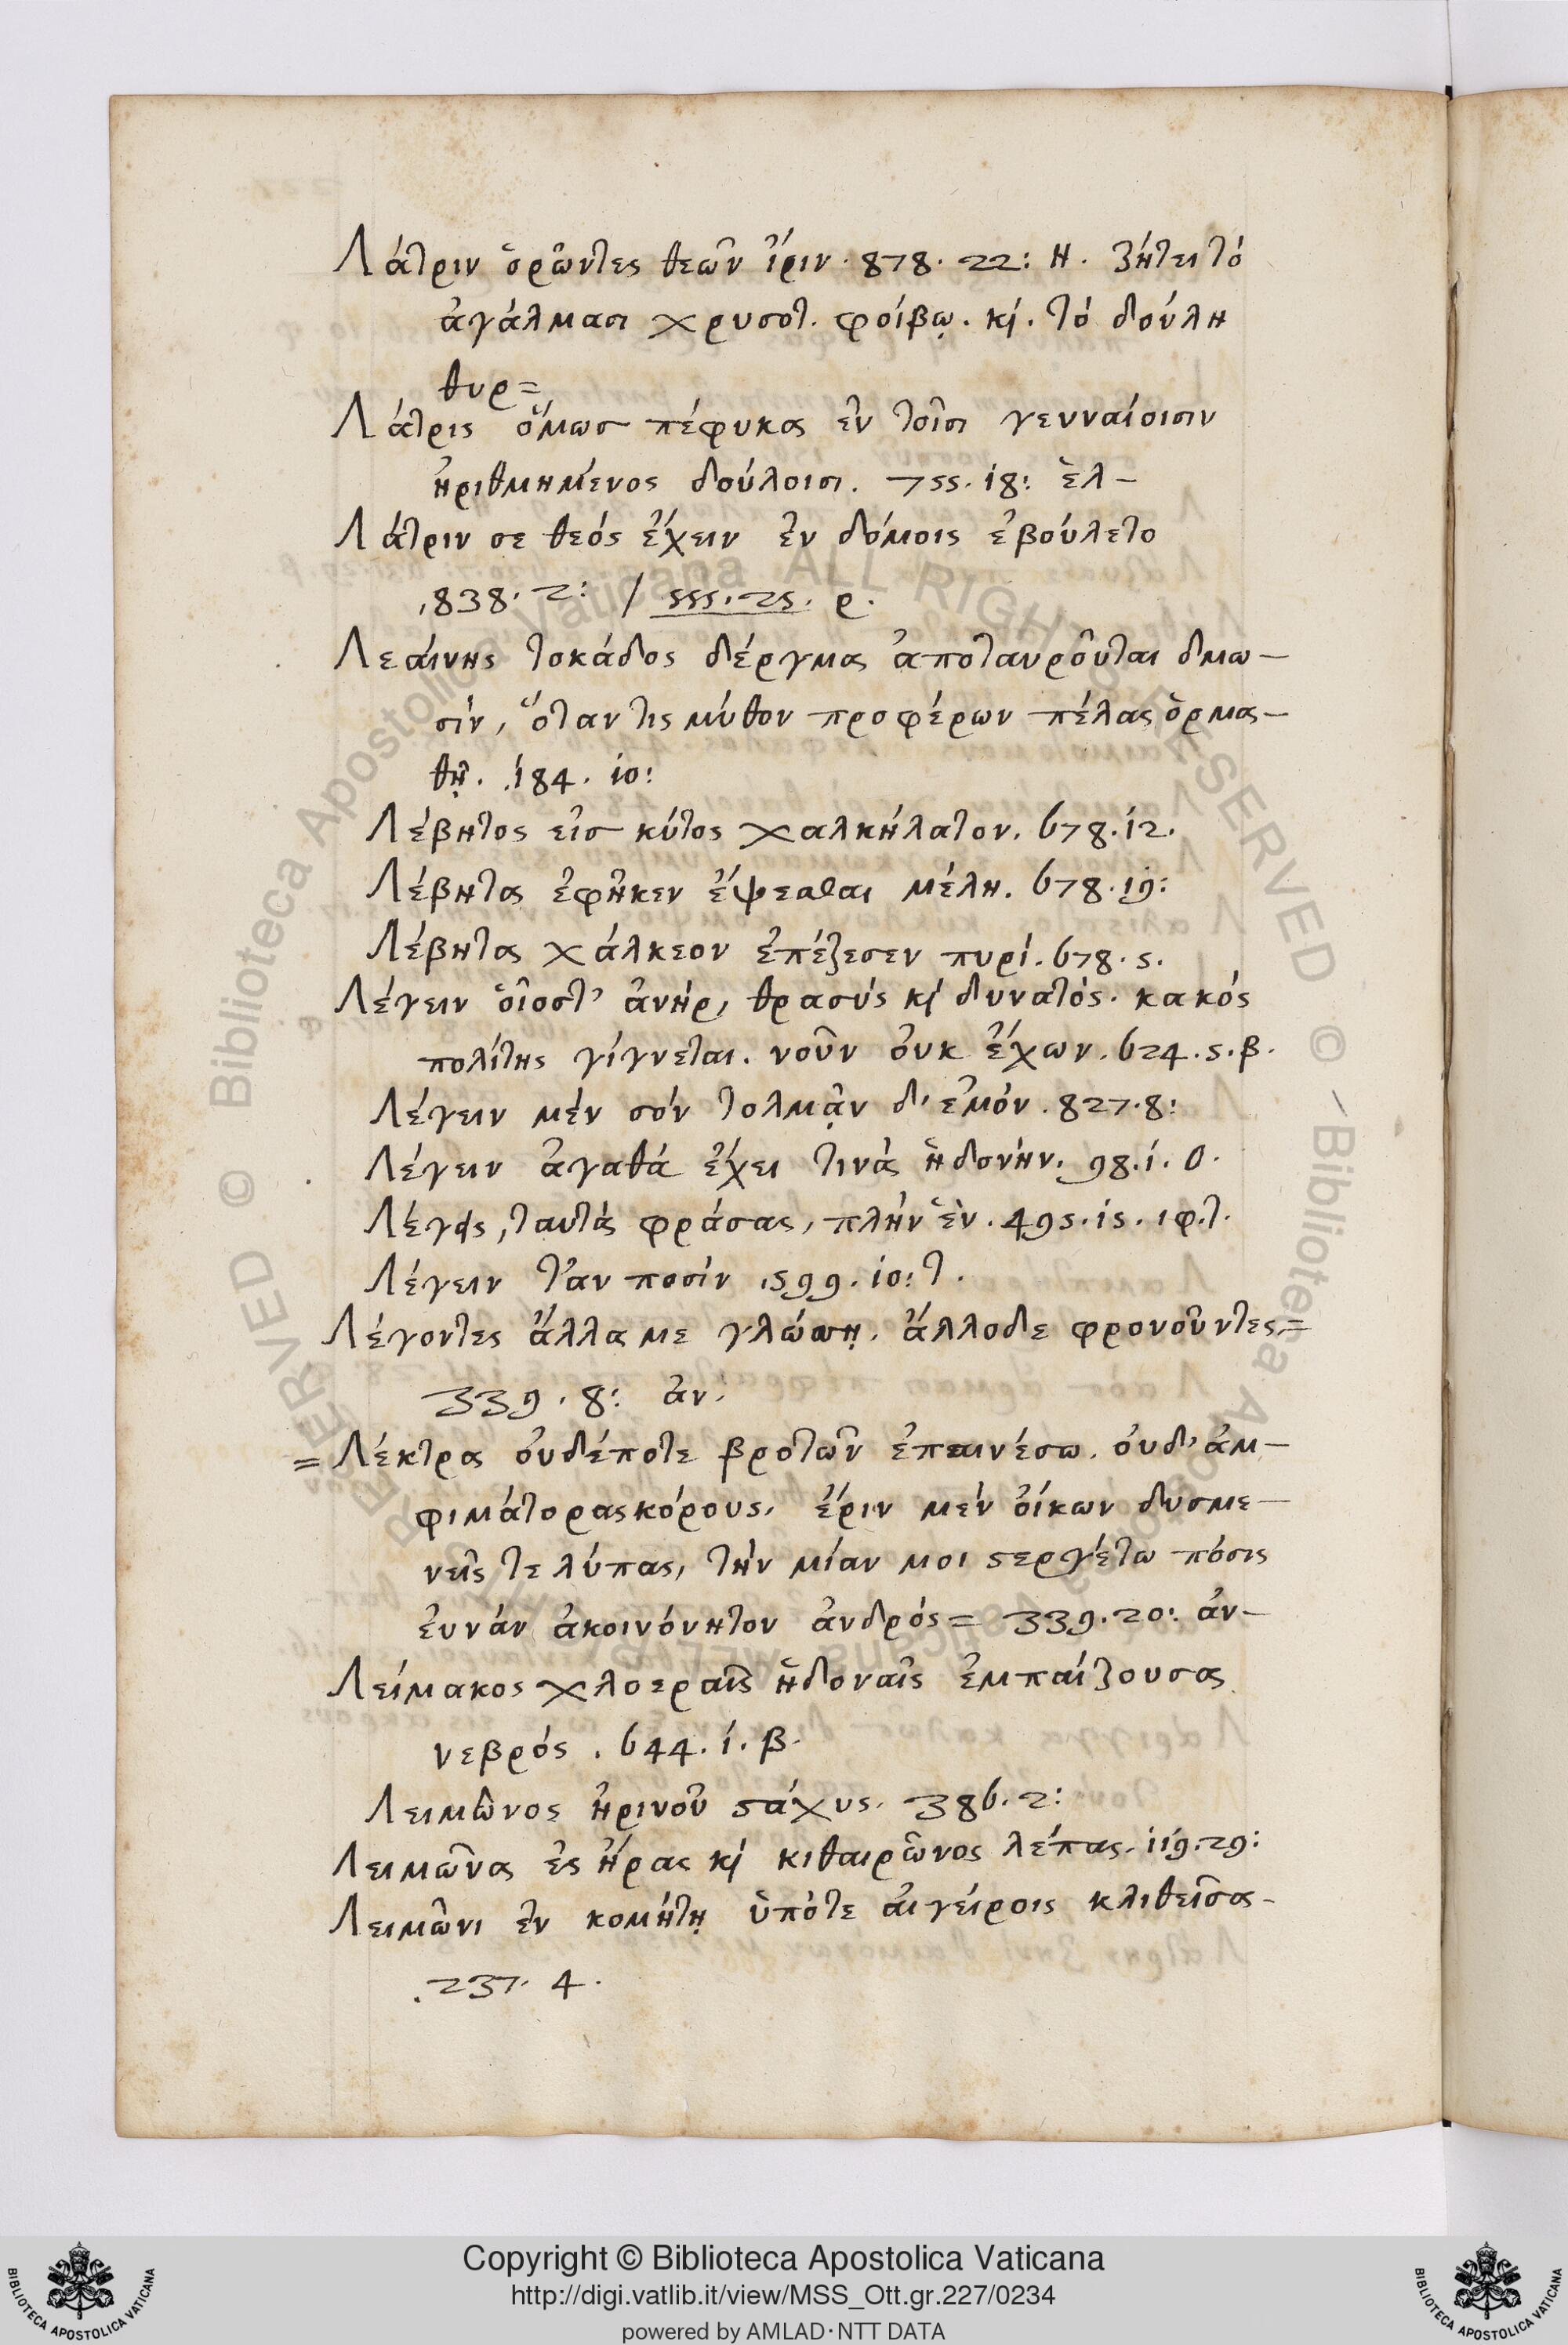 Λάτριν ὁρῶντες θεῶν ἶριν. 878. 22: Η. ζήτει τό
ἀγάλμασι χρυσοτ. φοίβῳ. κỳ. τό δούλη
θυρ=
Λάτρις ὅμως πέφυκα ἐν τοῖσι γενναίοισιν
ἠριθμημένος δούλοισι. 755. 18: ἑλ-
Λάτριν σε θεός ἔχειν ἐν δόμοις ἐβούλετο
,838. 2: / 555. 25. ρ.
Λεαίνης τοκάδος δέργμα ἀποταυροῦται δμω-
σίν, ὅταν τις μύθον προφέρων πέλας ὁρμα-
θῇ. .184. 10:
Λέβητος εἰς κύτος χαλκήλατον. 678. 12.
Λέβητα ἐφῆκεν ἕψεσθαι μέλη. 678. 19:
Λέβητα χάλκεον ἐπέζεσεν πυρί. 678. 5.
Λέγειν οἷοστ' ἀνήρ, θρασύς κỳ δυνατός. κακός
πολίτης γίγνεται. νοῦν οὐκ ἔχων. 624. 5. β.
Λέγειν μέν σόν τολμᾷν δ' ἐμόν. 827. 8:
Λέγειν ἀγαθά ἔχει τινά ἡδονήν. 98. 1. ο.
Λέγεις, ταυτά φράσας, πλήν ἕν. 495. 15. ιφ. τ.
Λέγειν τ'αν ποσίν ,599. 10: τ.
Λέγοντες ἄλλα με γλώσσῃ. ἄλλοδε φρονοῦντες.=
339. 8: ἀν.
= Λέκτρα οὐδέποτε βροτῶν ἐπαινέσω. οὐδ' ἀμ-
φιμάτορας κόρους, ἔριν μέν οἴκων δυσμε-
νεῖς τε λύπας, τήν μίαν μοι στεργέτω πόσις
ἐυνάν ἀκοινόνητον ἀνδρός= 339. 20: ἀν-
Λείμακος χλοεραῖς ἡδοναῖς ἐμπαίζουσα
νεβρός. 644. 1. β.
Λειμῶνος ἠρινοῦ στάχυς. 386. 2:
Λειμῶνα ἐς ἥρας κỳ κιθαιρῶνος λέπας. 119. 29:
Λειμῶνι ἐν κομήτῃ ὑπότε αἰγείροις κλιθεῖσα-
.237. 4.
Copyright © Biblioteca Apostolica Vaticana
http://digi.vatlib.it/view/MSS_Ott.gr.227/0234
powered by AMLAD·NTT DATA